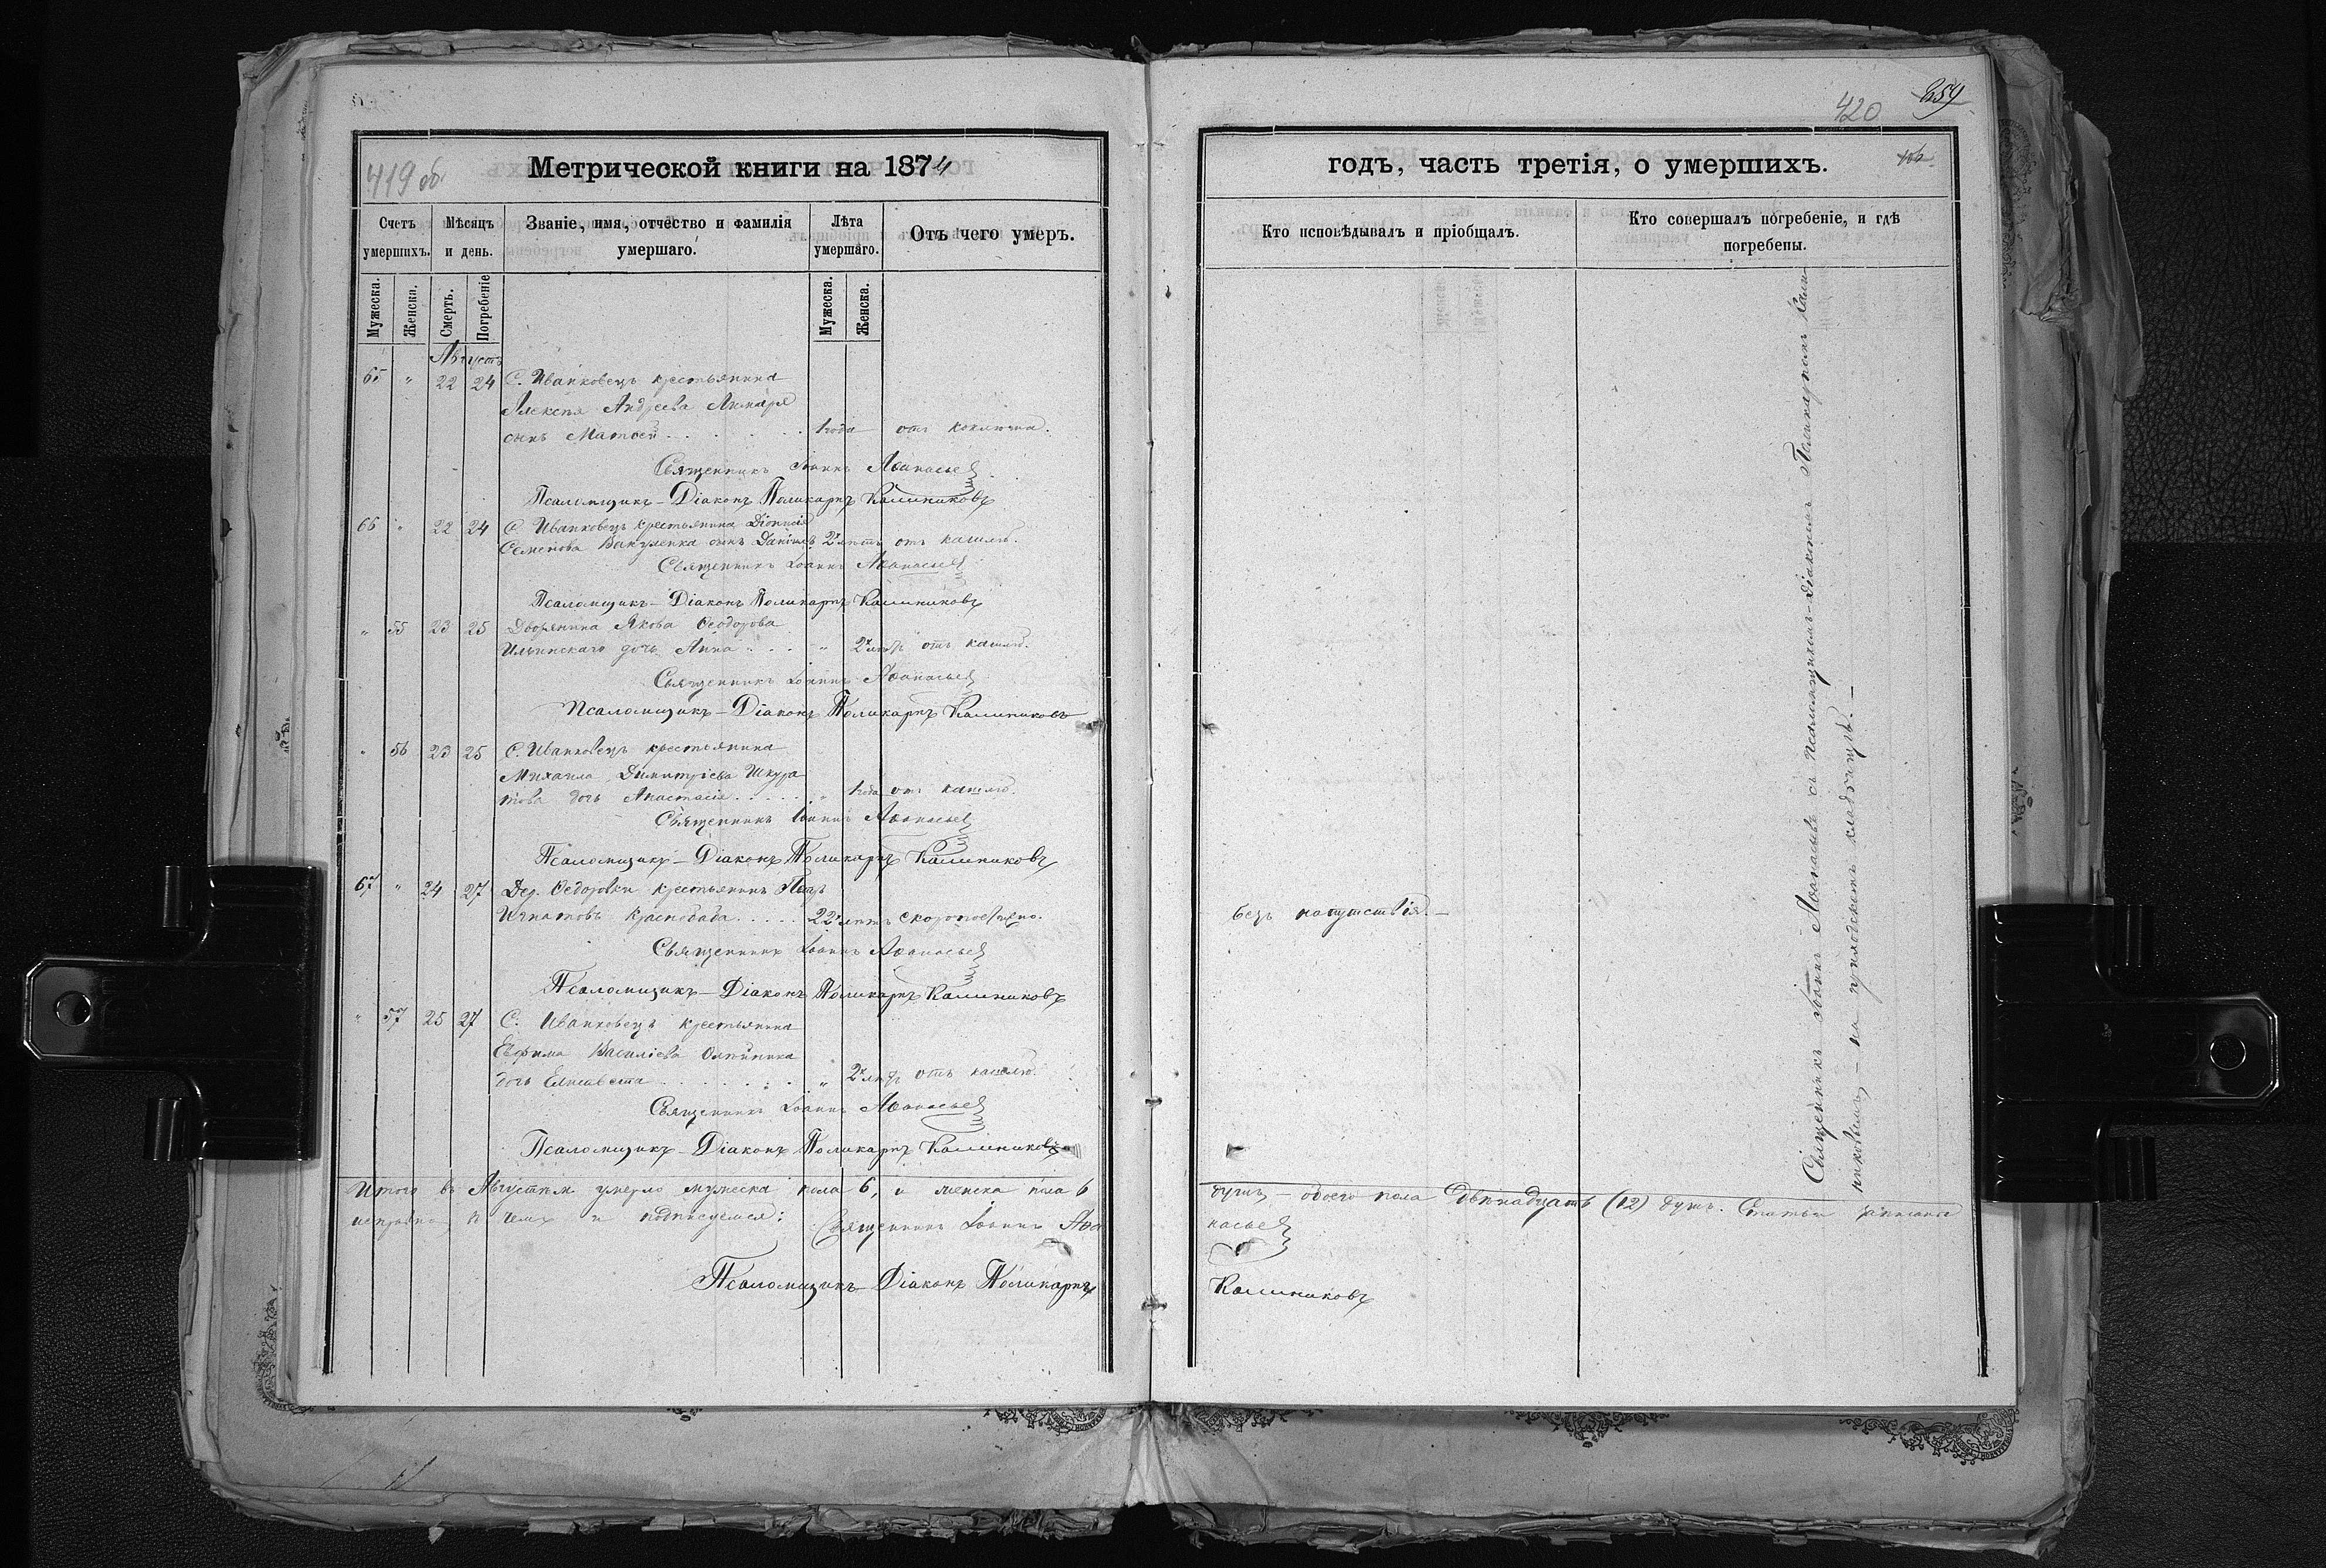 419 об.
Метрической книги на 1874
Счетъ умершихъ.
Мѣсяцъ и день.
Званіе, имя, отчество и фамилія умершаго.
Лѣта умершаго.
Отъ чего умеръ.
Мужеска.
Женска.
Смерть.
Погребеніе
Мужеска.
Женска.
Августъ
65 " 22 24 С. Иванковецъ крестьянина
Алексѣя Андреева Лимаря
сынъ Матѳей . . . . . 1 года отъ коклюша.
Священникъ Іоаннъ Аѳанасьев
Псаломщикъ-Діаконъ Поликарпъ Калиниковъ
66 " 22 24 С. Иванковецъ крестьянина Діонисія
Семенова Вакуленка сынъ Даніилъ 2 лѣтъ отъ кашлю.
Священникъ Іоаннъ Аѳанасьев
Псаломщикъ-Діаконъ Поликарпъ Калиниковъ
" 55 23 25 Дворянина Якова Ѳеодорова
Ильинскаго дочь Анна . . . " 2 лѣтъ отъ кашлю.
Священникъ Іоаннъ Аѳанасьев
Псаломщикъ-Діаконъ Поликарпъ Калиниковъ
" 56 23 25 С. Иванковецъ крестьянина
Михаила Димитріева Шкура
това дочь Анастасія . . . . . " 1 года отъ кашлю.
Священникъ Іоаннъ Аѳанасьев
Псаломщикъ-Діаконъ Поликарпъ Калиниковъ
67 " 24 27 Дер. Ѳедоровки крестьянинъ Петръ
Игнатовъ . . . . . 22 лѣтъ скоропостижно.
Священникъ Іоаннъ Аѳанасьев
Псаломщикъ-Діаконъ Поликарпъ Калиниковъ
" 57 25 27 С. Иванковецъ крестьянина
Евфима Василіева Олѣйника
дочь Елисавета . . . . . " 2 лѣтъ отъ кашлю.
Священникъ Іоаннъ Аѳанасьев
Псаломщикъ-Діаконъ Поликарпъ Калиниковъ
Итого въ Августѣ м. умерло мужеска пола 6, и женска пола 6
исправно, въ чемъ и подписуемся: Священникъ Іоаннъ Аѳа
Псаломщикъ-Діаконъ Поликарпъ
420
859
годъ, часть третія, о умершихъ.
Кто исповѣдывалъ и пріобщалъ.
Кто совершалъ погребеніе, и гдѣ погребены.
безъ напутствія.—
Священникъ Іоаннъ Аѳанасьевъ съ Псаломщикомъ-Діакономъ Поликарпомъ Кали
никовымъ,— на приходскомъ кладбищѣ.—
душъ,— обоего пола двѣнадцать (12) душъ. Статьи записаны
насьев
Калиниковъ